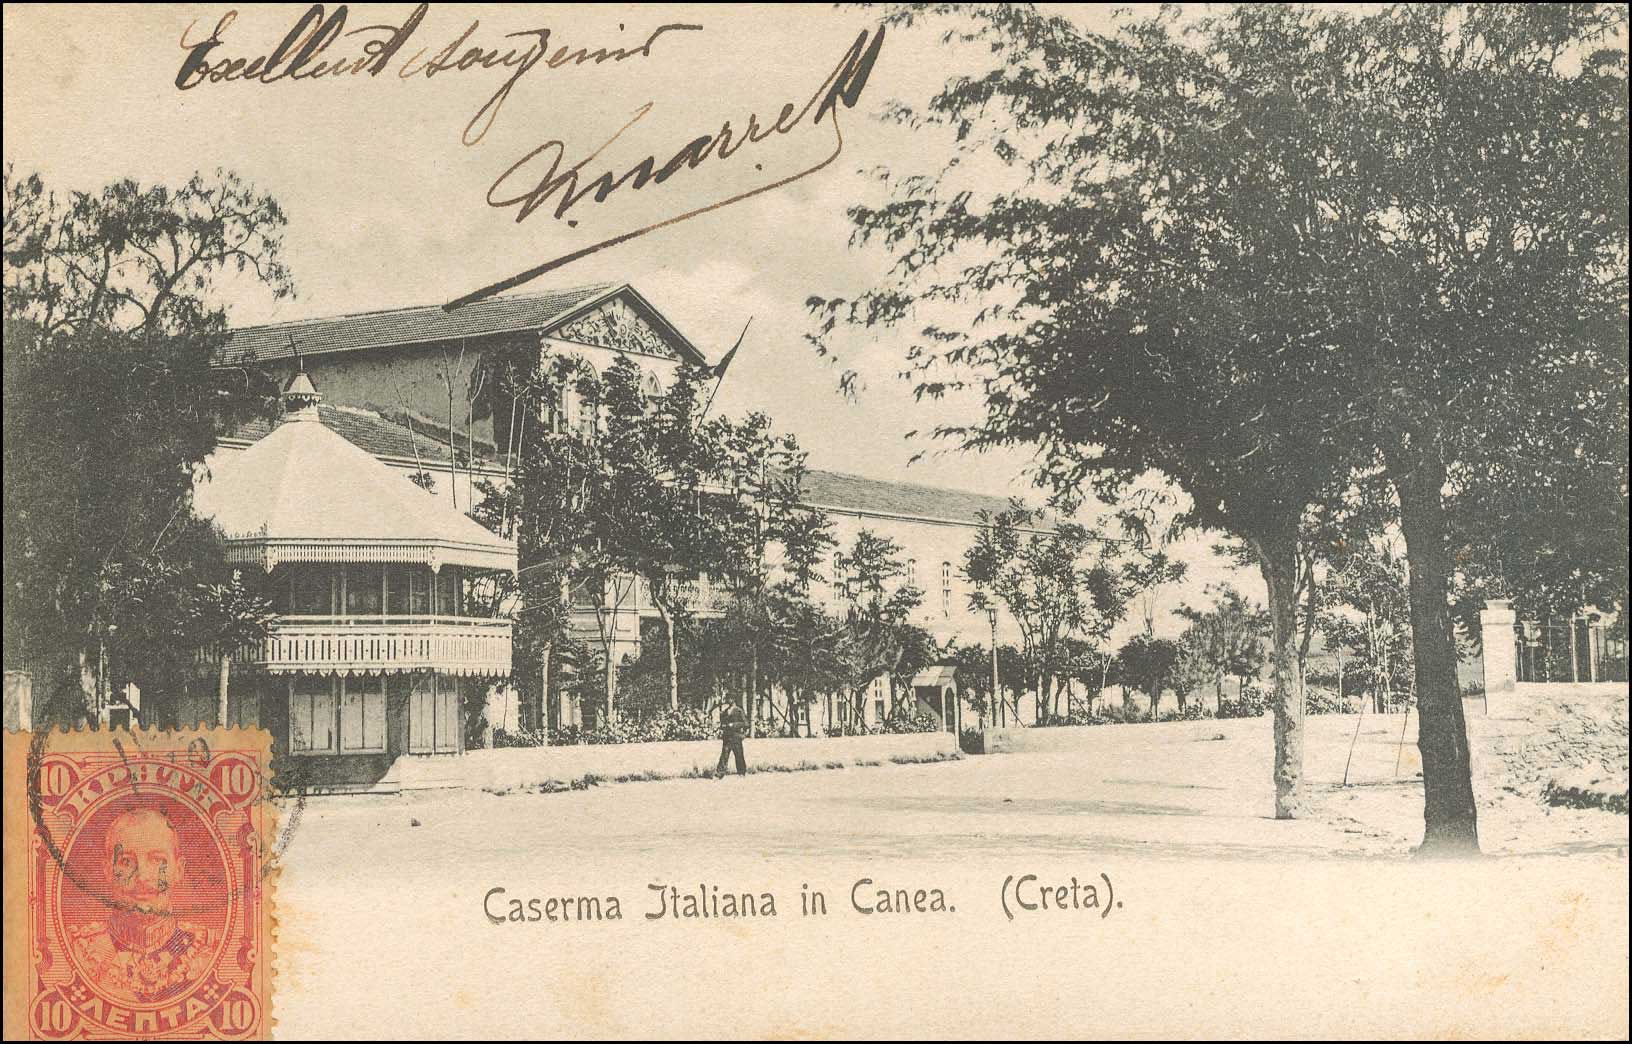 Excellent souvenir
Caserma Italiana in Canea. (Creta).
10 10
ΚΡΗΤΗ
10 10
ΛΕΠΤΑ